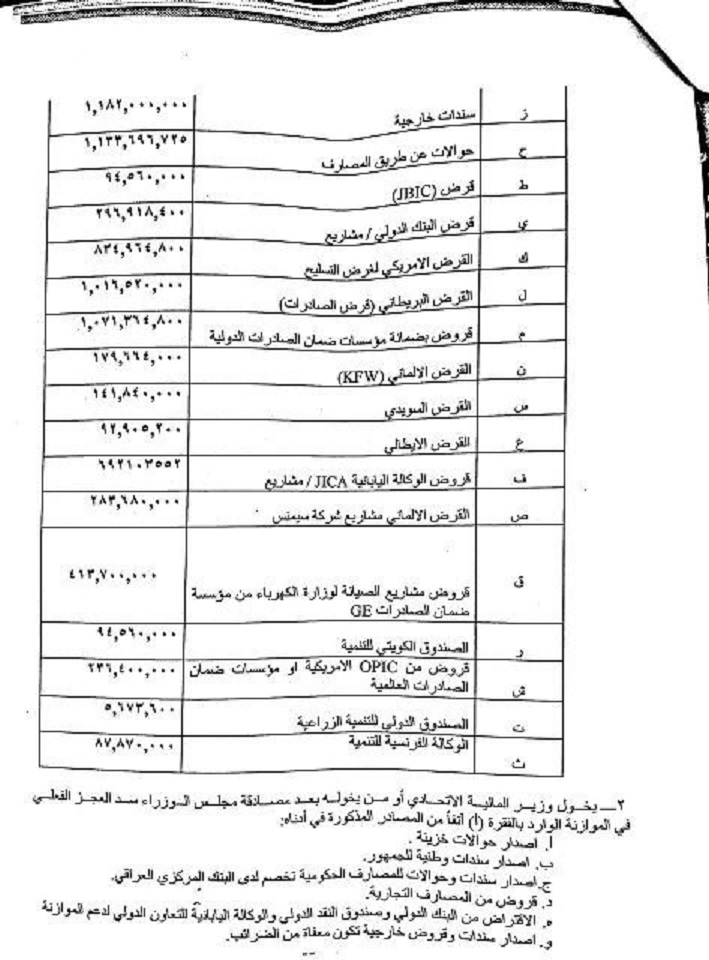 ز سندات خارجية ١,١٨٢,٠٠٠,٠٠٠
ح حوالات عن طريق المصارف ١,١٣٣,٦٩٦,٧٢٥
ط قرض (JBIC) ٩٤,٥٦٠,٠٠٠
ي قرض البنك الدولي / مشاريع ٢٩٦,٩١٨,٤٠٠
ك القرض الامريكي لغرض التسليح ٨٣٤,٩٦٤,٨٠٠
ل القرض البريطاني (قرض الصادرات) ١,٠١٦,٥٢٠,٠٠٠
م قروض بضمانة مؤسسات ضمان الصادرات الدولية ١,٠٧١,٣٦٤,٨٠٠
ن القرض الالماني (KFW) ١٧٩,٦٦٤,٠٠٠
س القرض السويدي ١٤١,٨٤٠,٠٠٠
ع القرض الايطالي ٩٢,٩٠٥,٢٠٠
ف قروض الوكالة اليابانية JICA / مشاريع ٦٩٢١٠٣٥٥٢
ص القرض الالماني مشاريع شركة سيمنس ٢٨٣,٦٨٠,٠٠٠
ق قروض مشاريع الصيانة لوزارة الكهرباء من مؤسسة ٤١٣,٧٠٠,٠٠٠
ضمان الصادرات GE
ر الصندوق الكويتي للتنمية ٩٤,٥٦٠,٠٠٠
ش قروض من OPIC الامريكية او مؤسسات ضمان ٢٣٦,٤٠٠,٠٠٠
الصادرات العالمية
ت الصندوق الدولي للتنمية الزراعية ٥,٦٧٣,٦٠٠
ث الوكالة الفرنسية للتنمية ٨٧,٨٧٠,٠٠٠
٢ـ يخول وزير المالية الاتحادي أو من يخوله بعد مصادقة مجلس الوزراء سد العجز الفعلي
في الموازنة الوارد بالفقرة (أ) آنفاً من المصادر المذكورة في أدناه:
أ. اصدار حوالات خزينة .
ب. اصدار سندات وطنية للجمهور.
ج. اصدار سندات وحوالات للمصارف الحكومية تخصم لدى البنك المركزي العراقي.
د. قروض من المصارف التجارية.
ه. الاقتراض من البنك الدولي وصندوق النقد الدولي والوكالة اليابانية للتعاون الدولي لدعم الموازنة
و. اصدار سندات وقروض خارجية تكون معفاة من الضرائب.